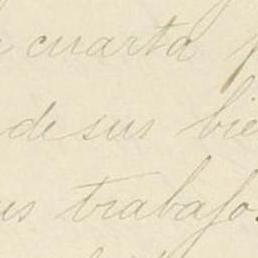 cuarta
de sus bie
us trabajo.